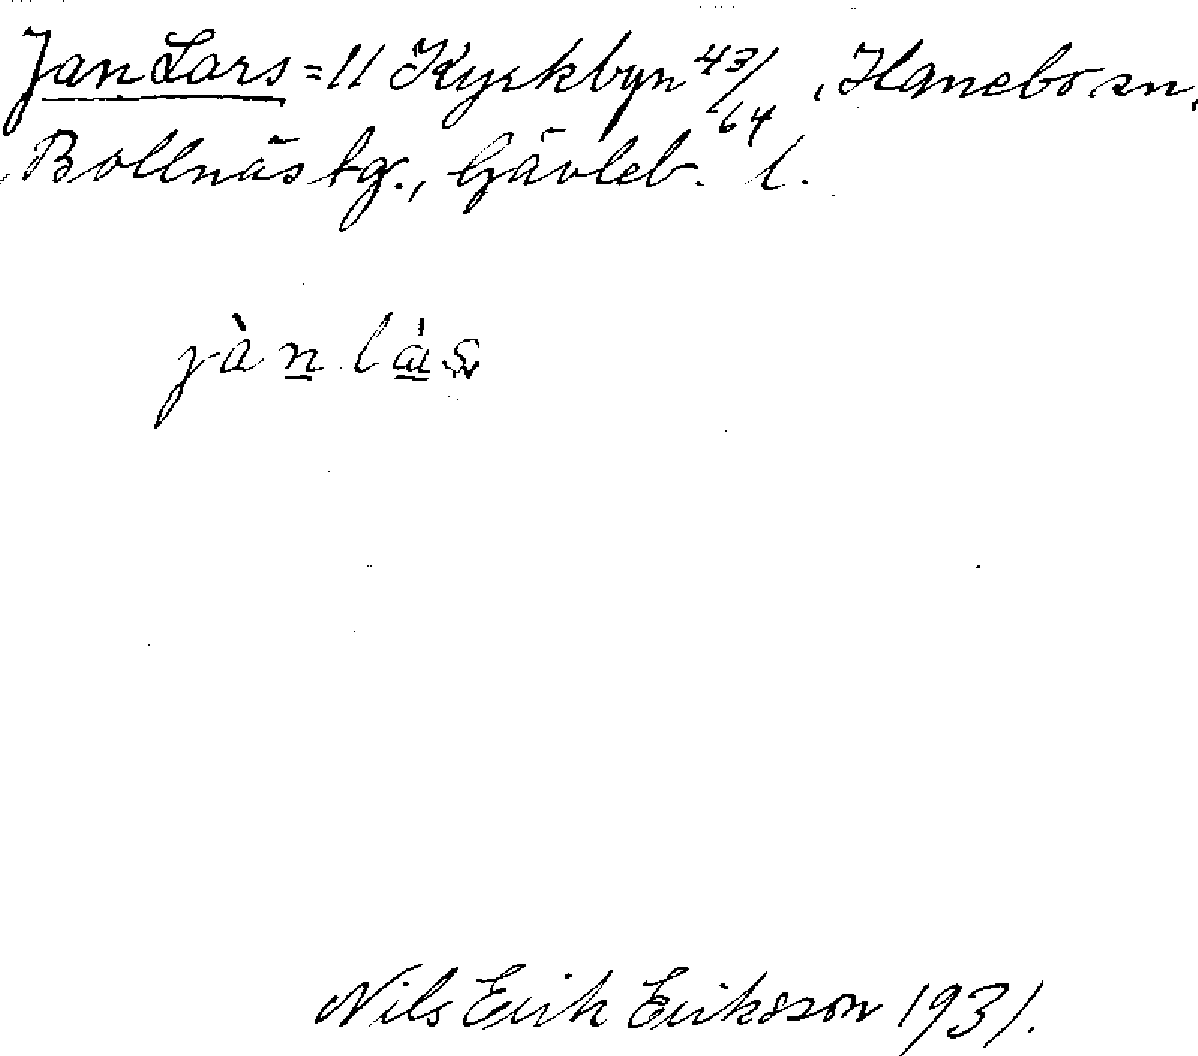 Jan Lars = 11 Kyrkbyn 43/64, Hanebo sn,
Bollnäs tg., Gävleb. l.
jàn lás
Nils Erik Eriksson 1931.